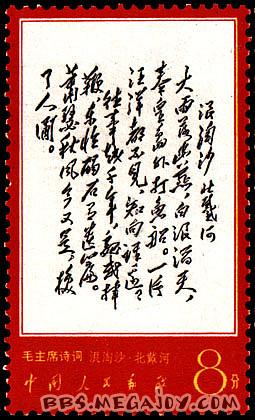 浪淘沙 北戴河
大雨落幽燕,白浪滔天,
秦皇岛外打鱼船。一片
汪洋都不见,知向谁边?
往事越千年,魏武挥
鞭,东临碣石有遗篇。
萧瑟秋风今又是,换
了人间。
毛主席诗词 浪淘沙·北戴河
8分
中国人民邮政
BBS.MEGAJOY.COM